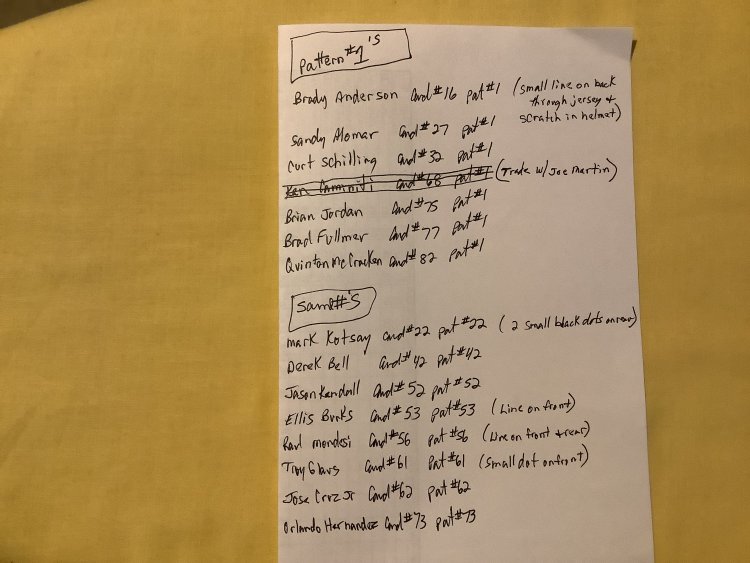 Pattern #1's
Brady Anderson Card #16 pat #1 (small line on back
through jersey +
scratch in helmet)
Sandy Alomar Card #27 pat #1
Curt Schilling Card #32 pat #1
Ken Caminiti Card #68 pat #1 (Trade w/ Joe Martin)
Brian Jordan Card #75 pat #1
Brad Fullmer Card #77 pat #1
Quinton McCracken Card #82 pat #1
Same #'s
Mark Kotsay Card #22 pat #22 (2 small black dots on rear)
Derek Bell Card #42 pat #42
Jason Kendall Card #52 pat #52
Ellis Burks Card #53 pat #53 (Line on front)
Raul Mondesi Card #56 pat #56 (Line on front + rear)
Troy Glaus Card #61 pat #61 (small dot on front)
Jose Cruz Jr Card #62 pat #62
Orlando Hernandez Card #73 pat #73